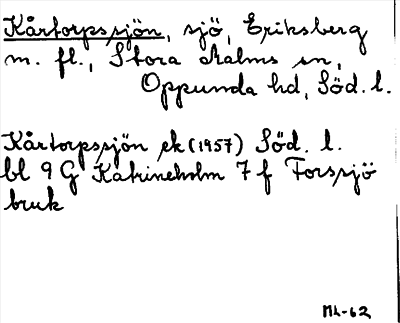 Kårtorpssjön, sjö, Eriksberg
m. fl., Stora Malms sn,
Oppunda hd, Söd. l.
Kårtorpssjön ek (1957) Söd. l.
bl 9 G Katrineholm 7 f Forssjö
bruk
ML-62